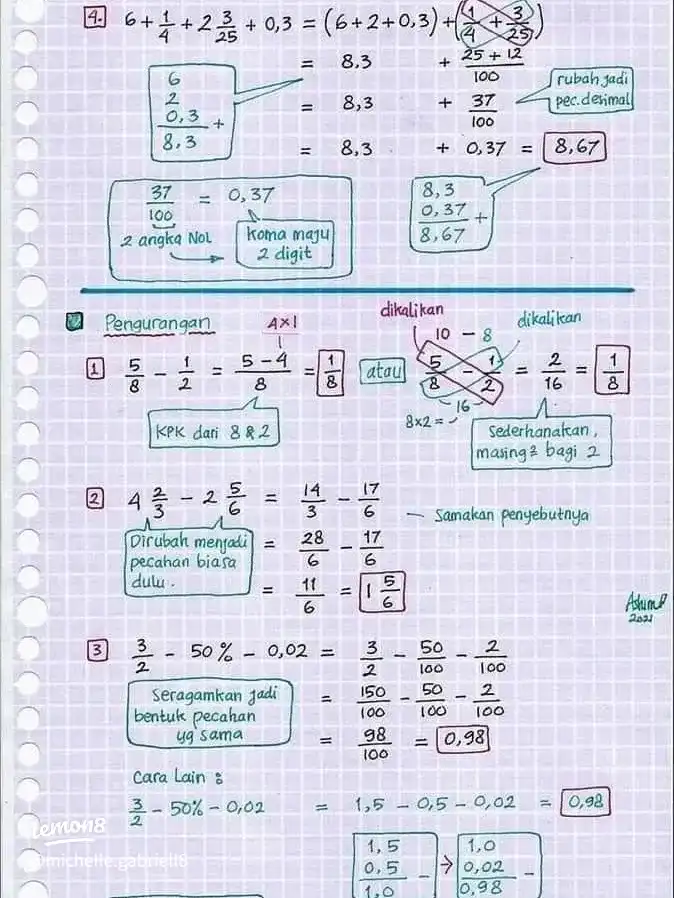 4. 6 + 1/4 + 2 3/25 + 0,3 = (6 + 2 + 0,3) + (1/4 + 3/25)
= 8,3 + 25 + 12/100
6
2
0,3 +
8,3
= 8,3 + 37/100
rubah jadi
pec. desimal
= 8,3 + 0,37 = 8,67
37/100 = 0,37
2 angka Nol
Koma maju
2 digit
8,3
0,37 +
8,67
Pengurangan
4x1
1 5/8 - 1/2 = 5 - 4/8 = 1/8
KPK dari 8 & 2
atau
dikalikan
dikalikan
10 - 8
5/8 - 1/2 = 2/16 = 1/8
16
8x2 =
Sederhanakan,
masing2 bagi 2
2 4 2/3 - 2 5/6 = 14/3 - 17/6
— Samakan penyebutnya
Dirubah menjadi
pecahan biasa
dulu.
= 28/6 - 17/6
= 11/6 = 1 5/6
2021
3 3/2 - 50% - 0,02 = 3/2 - 50/100 - 2/100
Seragamkan jadi
bentuk pecahan
yg sama
= 150/100 - 50/100 - 2/100
= 98/100 = 0,98
Cara Lain :
3/2 - 50% - 0,02 = 1,5 - 0,5 - 0,02 = 0,98
1,5
0,5 -
1,0
1,0
0,02 -
0,98
lemon8
@michelle.gabriell8